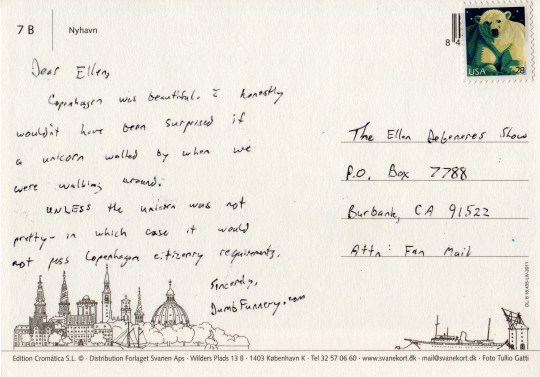 7 B
Nyhavn
84
USA
28
Dear Ellen,
Copenhagen was beautiful. I honestly
wouldn't have been surprised if
a unicorn walked by when we
were walking around.
UNLESS the unicorn was not
pretty- in which case it would
not pass Copenhagen citizenry requirements.
Sincerely,
DumbFunnery.com
The Ellen DeGeneres Show
P.O. Box 7788
Burbank, CA 91522
Attn: Fan Mail
Edition Cromática S.L. © · Distribution Forlaget Svanen Aps · Wilders Plads 13 8 · 1403 København K · Tel 32 57 06 60 · www.svanekort.dk · mail@svanekort.dk · Foto Tullio Gatti